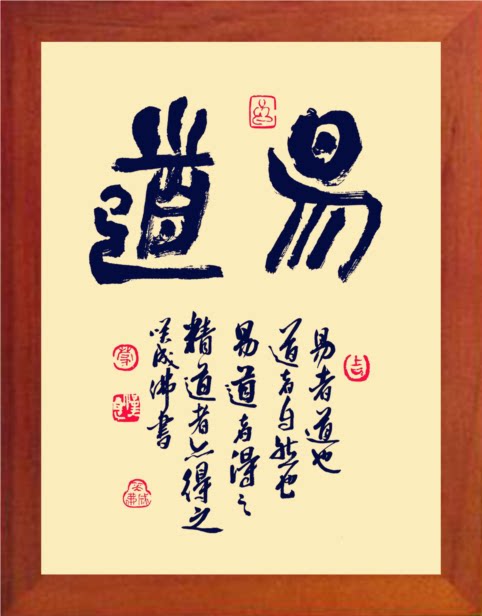 易道
易者道也
道者自然也
易道者得之
精道者亦得之
咲成佛書